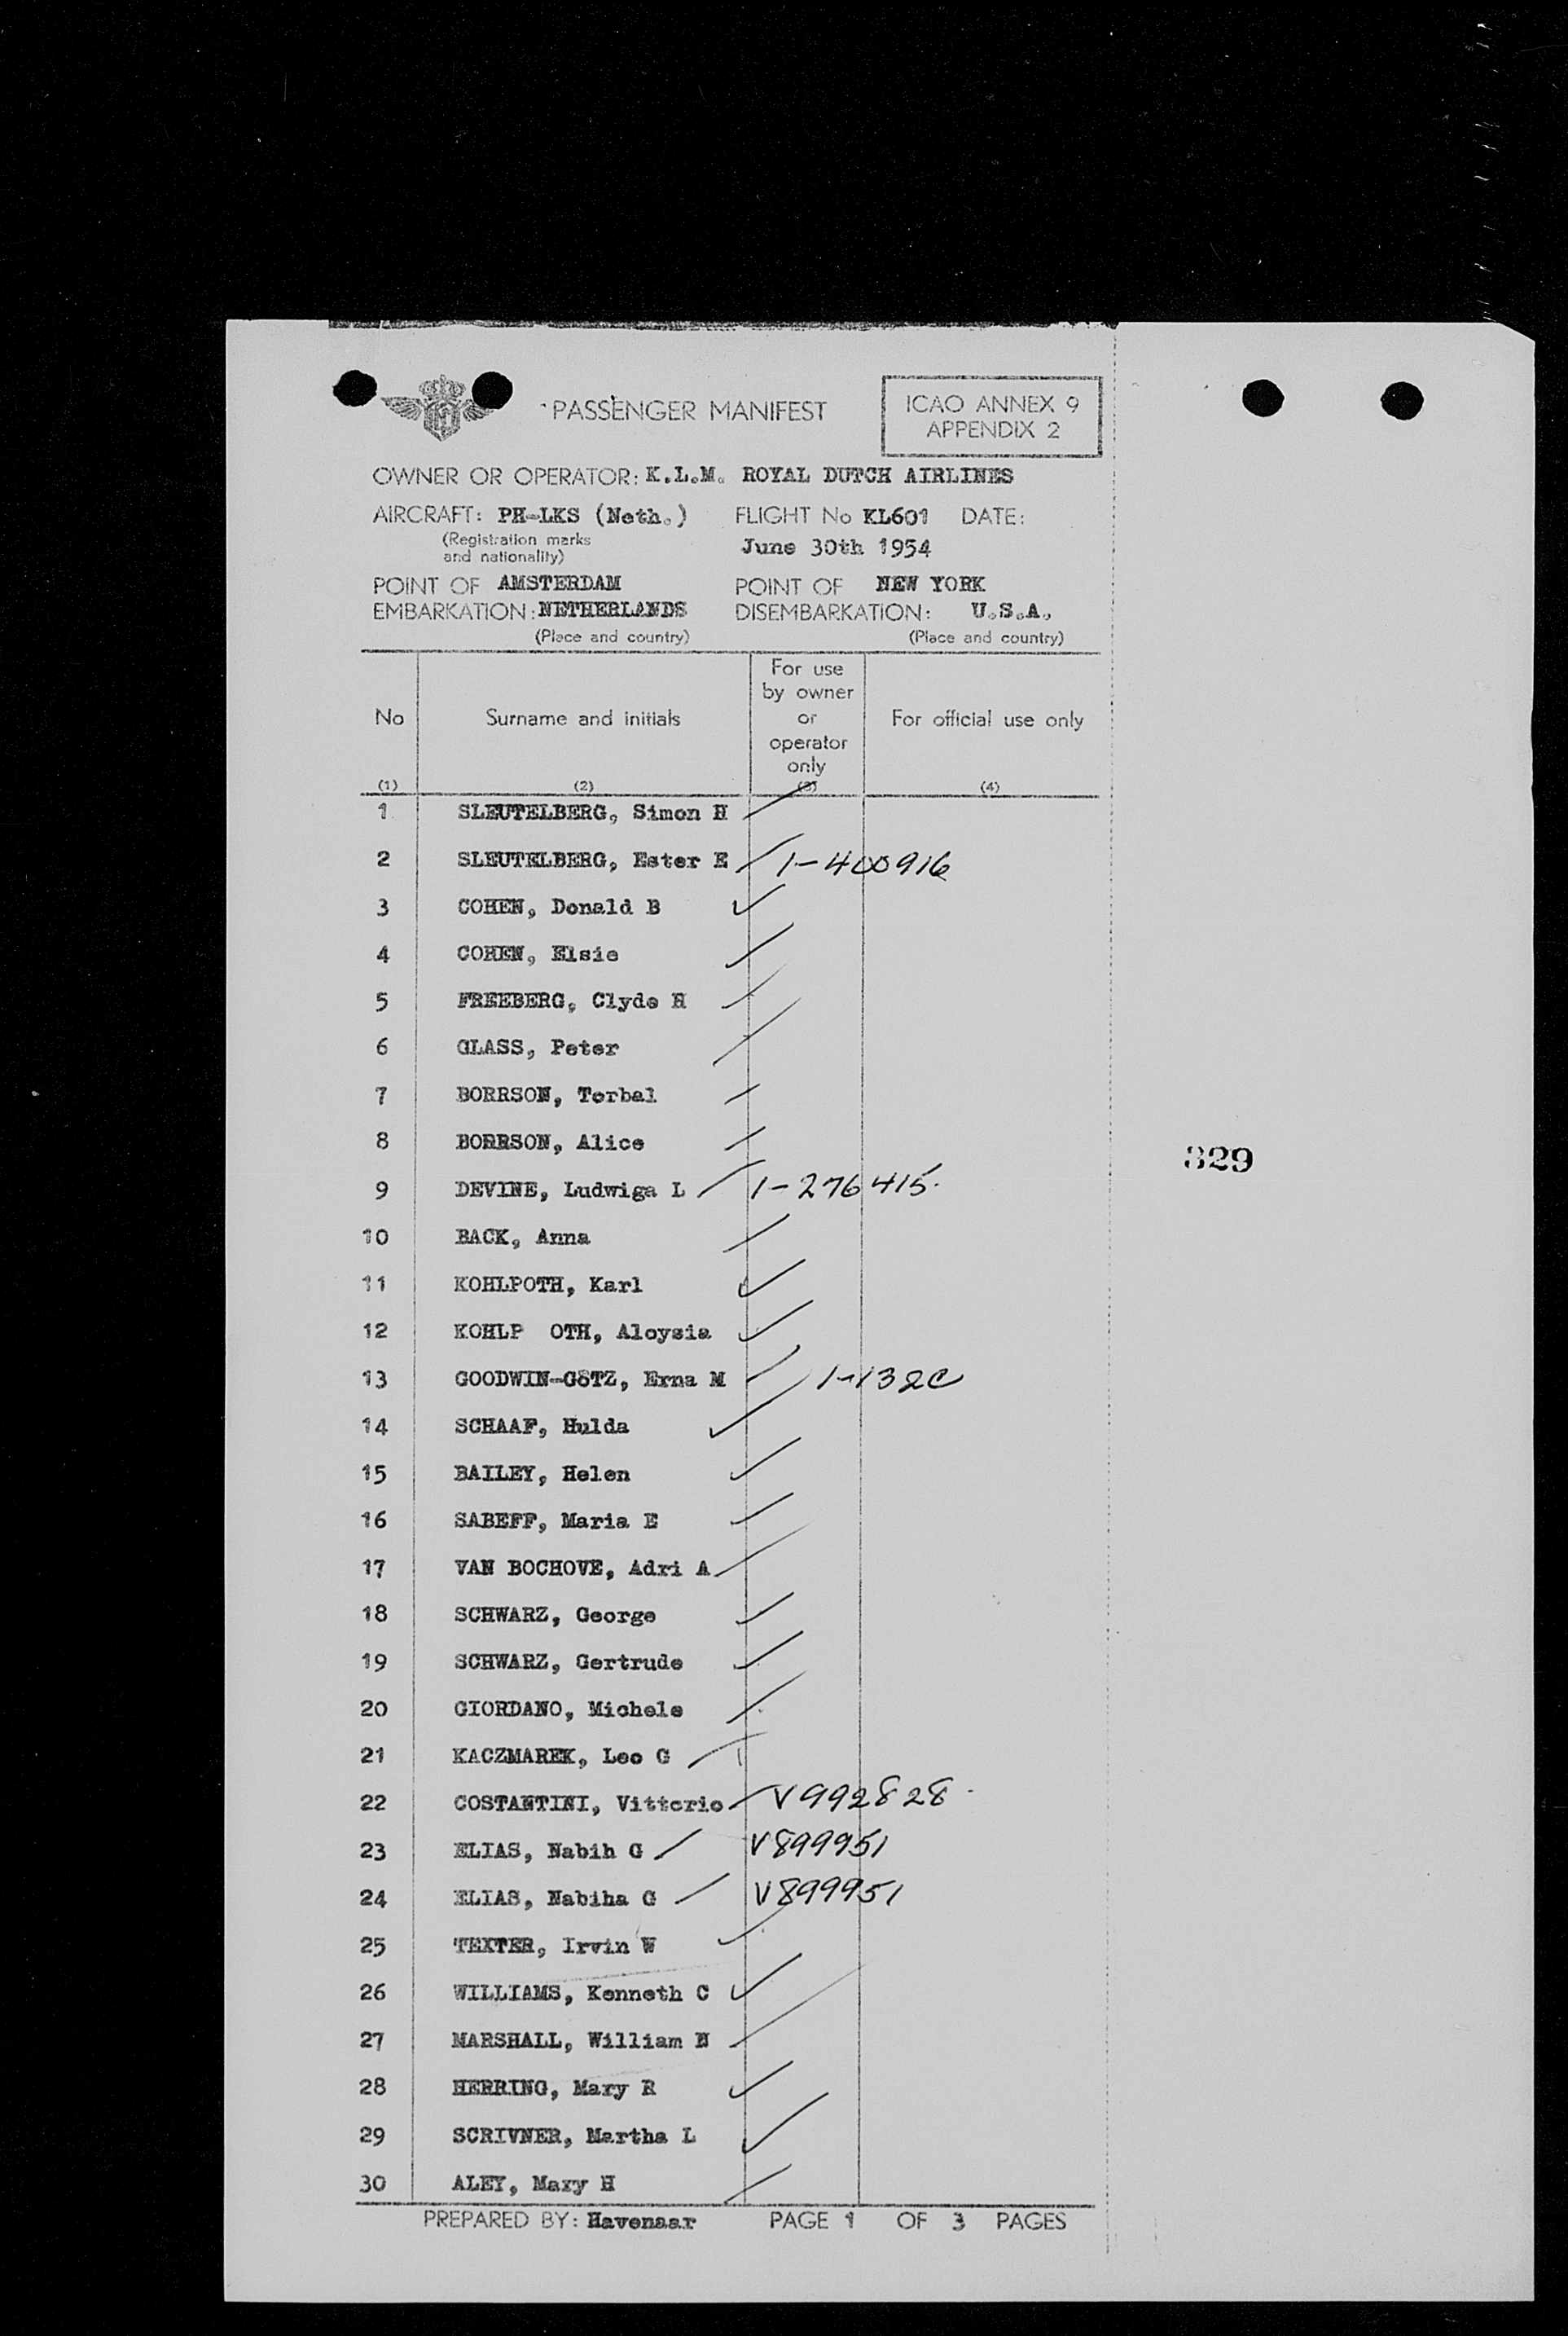 PASSENGER MANIFEST
ICAO ANNEX 9
APPENDIX 2
OWNER OR OPERATOR: K.L.M. ROYAL DUTCH AIRLINES
AIRCRAFT: PH-LKS (Neth.) FLIGHT No KL601 DATE:
(Registration marks
and nationality)
June 30th 1954
POINT OF AMSTERDAM POINT OF NEW YORK
EMBARKATION: NETHERLANDS DISEMBARKATION: U.S.A.
(Place and country) (Place and country)
No Surname and initials For use by owner or operator only For official use only
(1) (2) (3) (4)
1 SLEUTELBERG, Simon H
2 SLEUTELBERG, Ester E 1-400916
3 COHEN, Donald B
4 COHEN, Elsie
5 FREEBERG, Clyde H
6 GLASS, Peter
7 BORRSON, Torbal
8 BORRSON, Alice
329
9 DEVINE, Ludwiga L 1-276415.
10 BACK, Anna
11 KOHLPOTH, Karl
12 KOHLP OTH, Aloysia
13 GOODWIN-GÖTZ, Erna M
14 SCHAAF, Hulda
15 BAILEY, Helen
16 SABEFF, Maria E
17 VAN BOCHOVE, Adri A
18 SCHWARZ, George
19 SCHWARZ, Gertrude
20 GIORDANO, Michele
21 KACZMAREK, Leo G
22 COSTANTINI, Vittorio V992828
23 ELIAS, Nabih G V899951
24 ELIAS, Nabiha G V899951
25 TEXTER, Irvin W
26 WILLIAMS, Kenneth C
27 MARSHALL, William N
28 HERRING, Mary R
29 SCRIVNER, Martha L
30 ALEY, Mary H
PREPARED BY: Havenaar PAGE 1 OF 3 PAGES